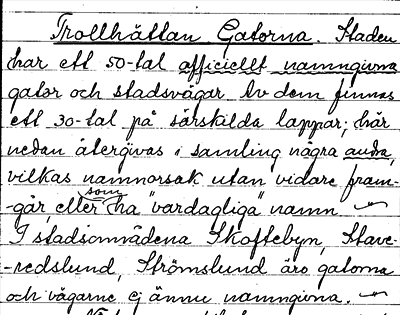 Trollhättan Gatorna. Staden
har ett 50-tal officiellt namngivna
gator och stadsvägar. Av dem finnas
ett 30-tal på särskilda lappar; här
nedan återgivas i samling några andra,
vilkas namnorsak utan vidare fram-
-går, eller som ha "vardagliga" namn.
I stadsområdena Skoftebyn, Stave-
-redslund, Strömslund äro gatorna
och vägarne ej ännu namngivna.